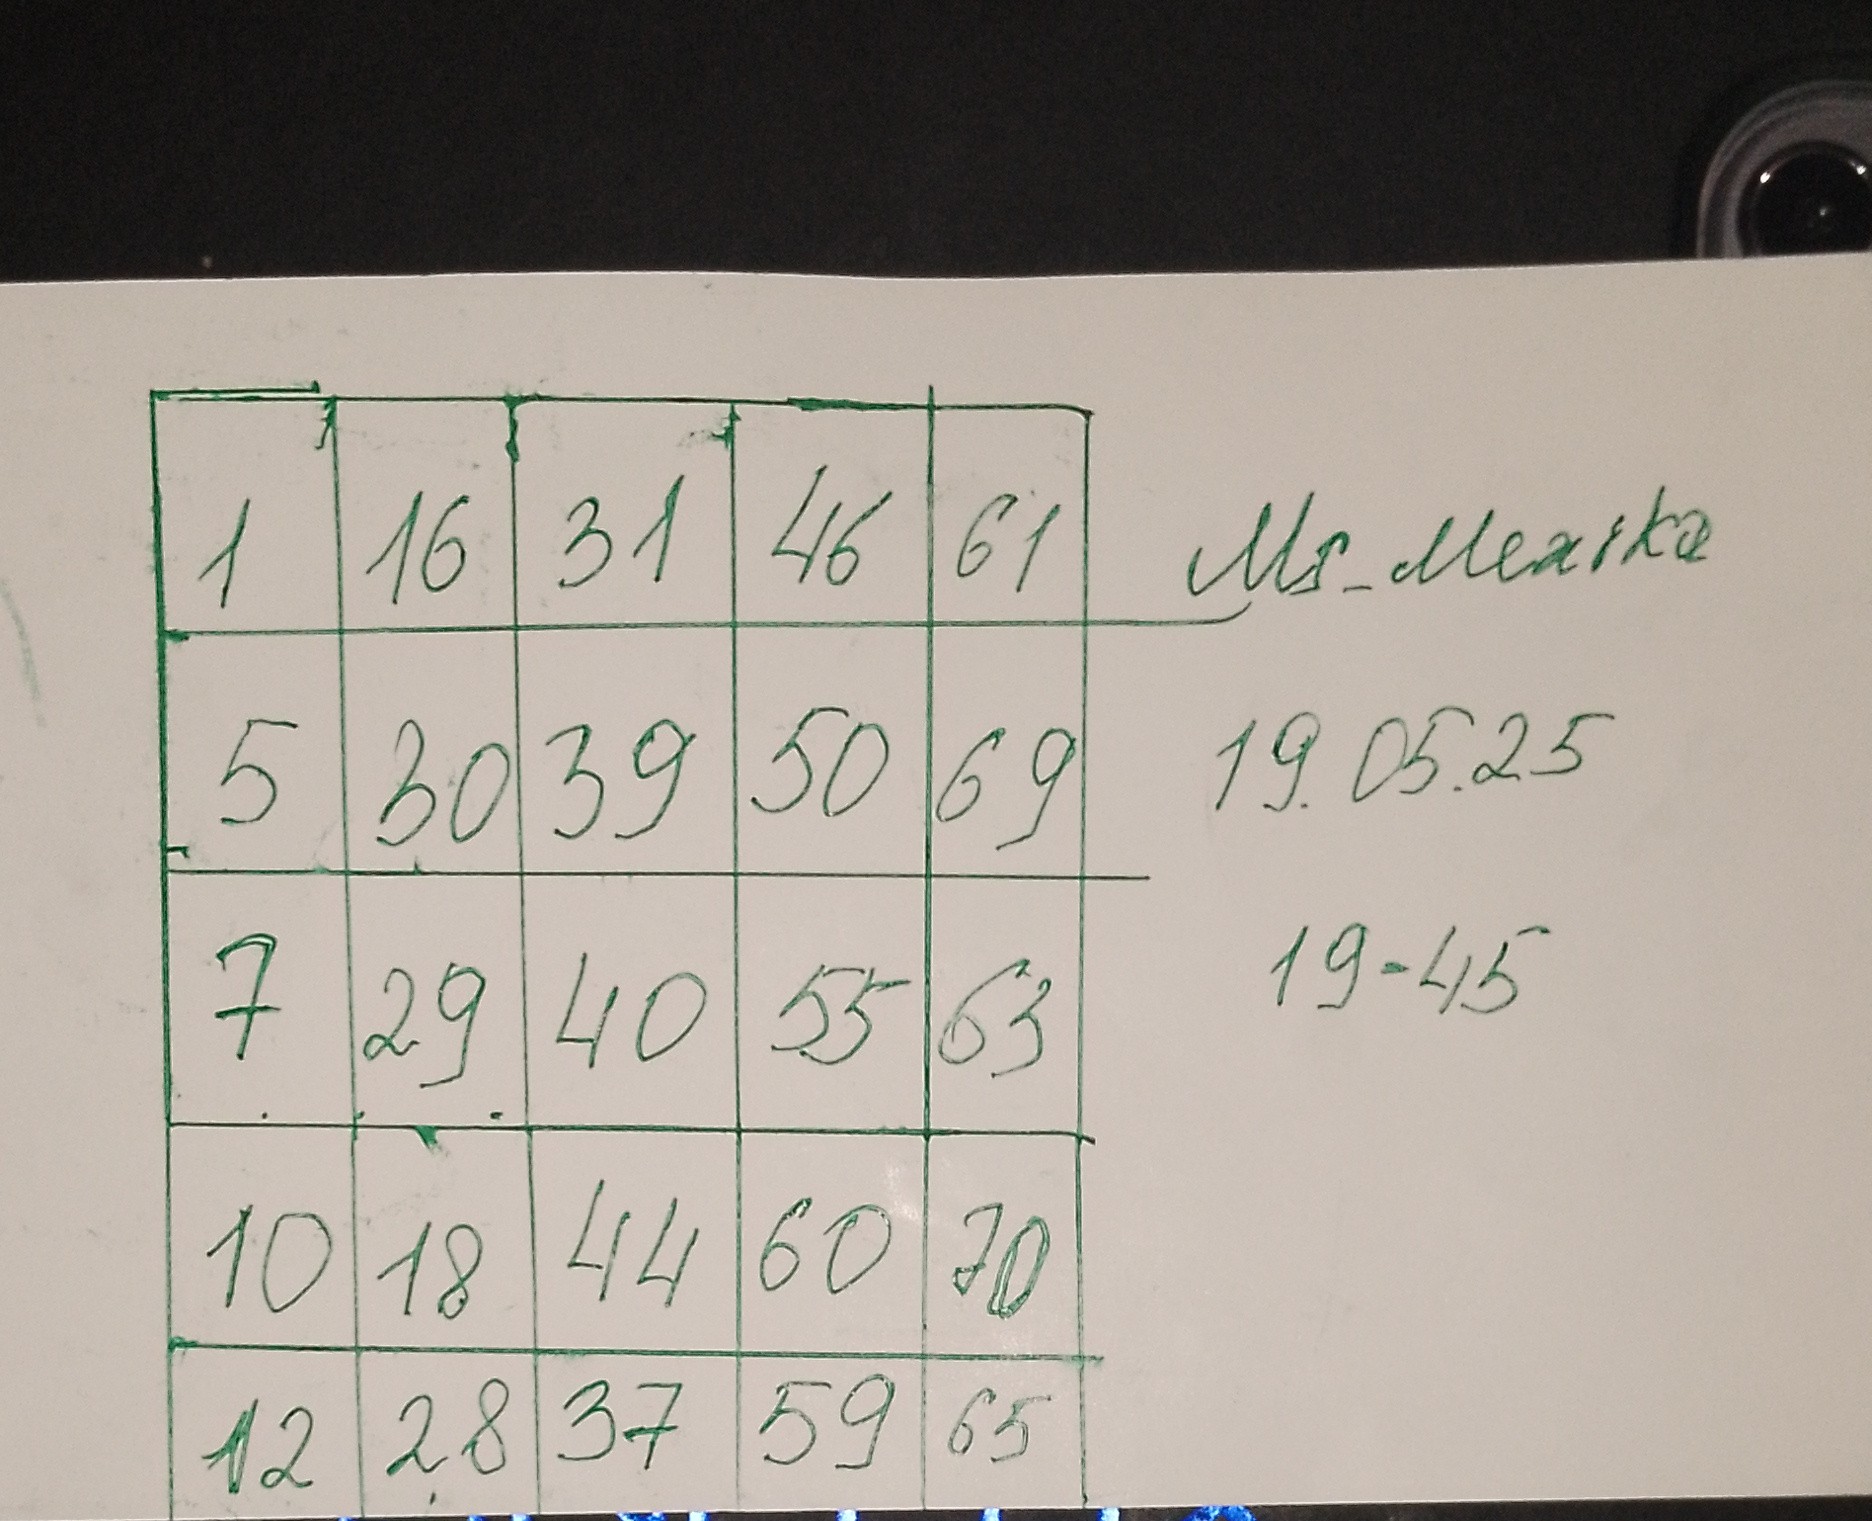 1 16 31 46 61 Ms_Mexika
5 30 39 50 69 19.05.25
7 29 40 55 63 19-45
10 18 44 60 70
12 28 37 59 65